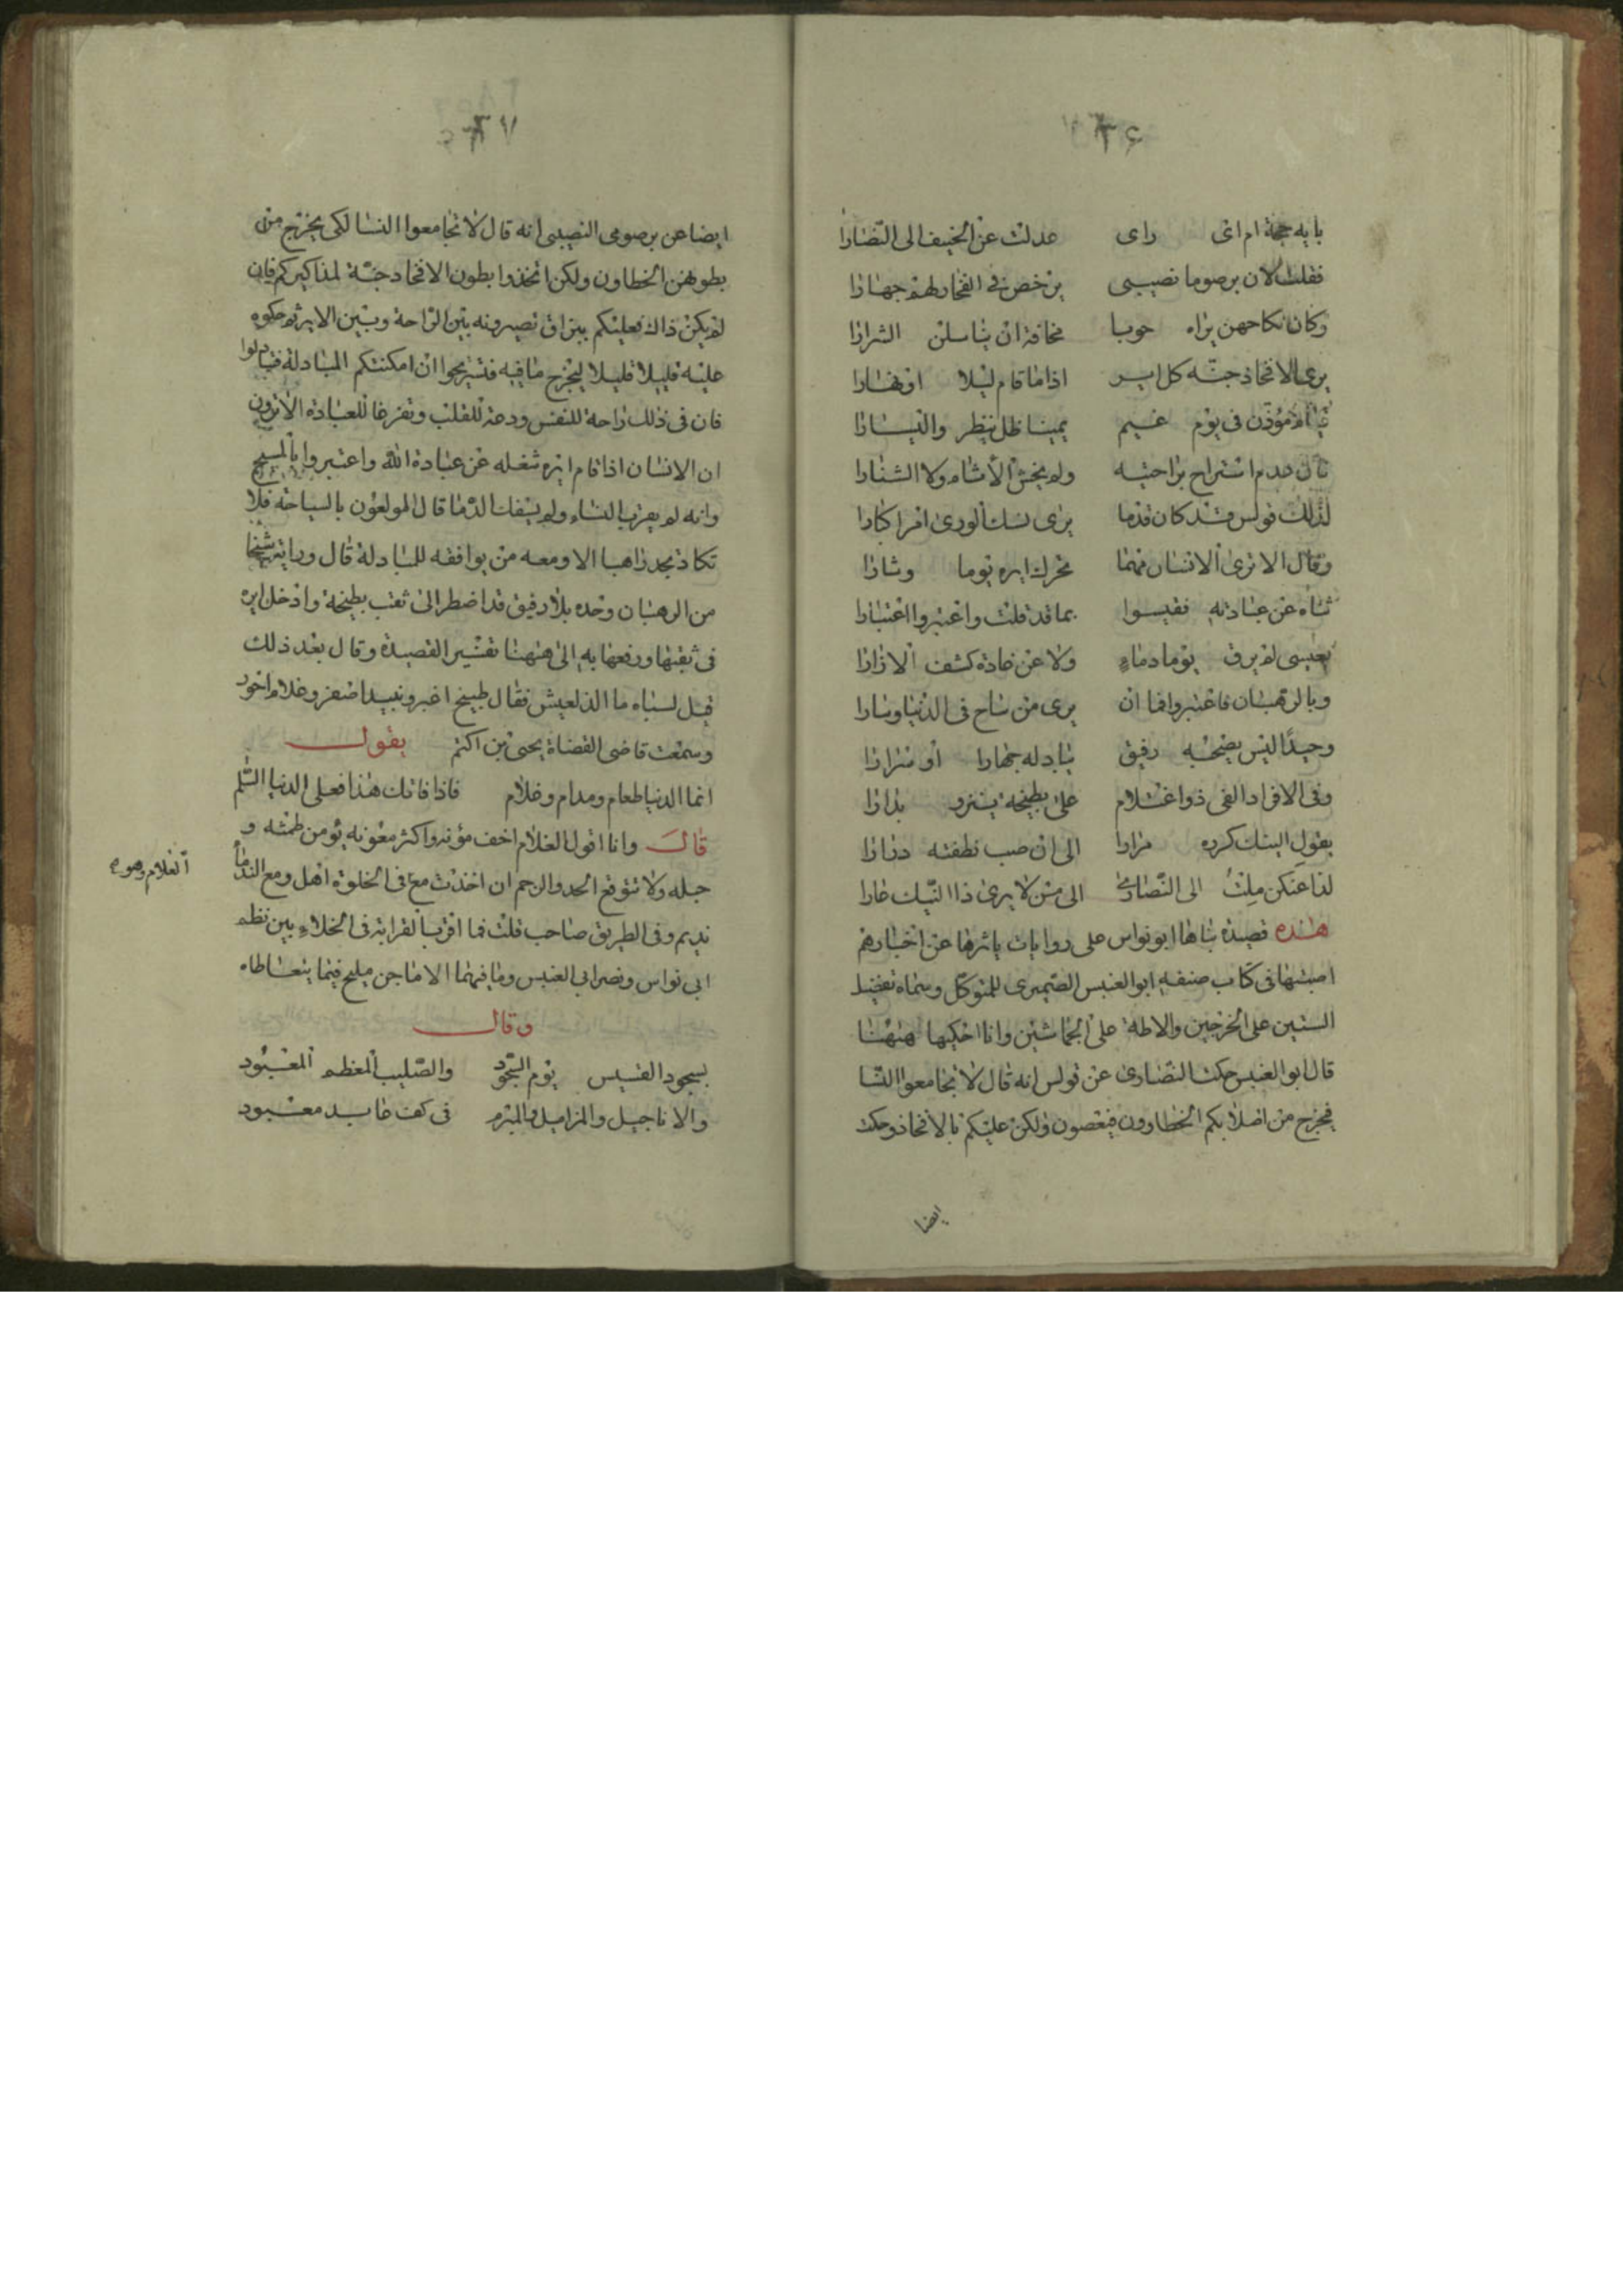 ٣٣٦
بايه حجة ام اى راى عدلت عن الحنيف الى النصارا
فقلت لان برصوما نصيبى يرخص فى الفخار لهم جهارا
وكان نكاحهن يراه حوبا مخافة ان يناسلن الشرارا
يرى الافخاذ جنة كل اير اذا ما قام ليلا او نهارا
مؤذن فى يوم غيم يمينا ظل ينظر واليسارا
استراح براحتيه ولم يخش الأثام ولا الشنارا
لذلك فولس وقد كان قدما يرى نسك الورى امرا كبارا
وقال الا ترى الانسان مهما تحرك ايره يوما وثارا
ثناه عن عبادته فقيسوا بما قد قلت واعتبروا اعتبارا
بعيسى لم يرق يوما دماء ولا عن غادة كشف الازارا
وبالرهبان فاعتبروا فما ان يرى من ساح فى الدنيا وسارا
وحيدًا ليس يصحبه رفيق يبادله جهارا او سرارا
وفى الافراد الفى ذو اغتلام على بطيخة ينزو بدارا
يقول النيك كرره مرارا الى ان صب نطفته درارا
لذا عنكن ملتُ الى النصارى الى من لا يرى ذا النيك عارا
هذه قصيدة بناها ابو نواس على روايات ياثرها عن اخبارهم
اصبتها فى كتاب صنفه ابو العنبس الصيمرى للمتوكل وسماه تفضيل
السنين على الخرجين والاطة على الجماشين وانا احكيها ههنا
قال ابو العنبس حكت النصارى عن فولس انه قال لا تجامعوا النسا
فيخرج من اصلابكم الخطاوون فيعصون ولكن عليكم بالافخاذ وحكت
ايضا
٣٣٧
ايضا عن برصومى النصيبى انه قال لا تجامعوا النسا لكى يخرج من
بطونهن الخطاون ولكن اتخذوا بطون الافخاد جنة لمذاكيركم فان
لم يكن ذاك فعليكم ببزاق تصيرونه بين الراحة وبين الاير ثم حكوه
عليه قليلا قليلا ليخرج ما فيه فتستريحوا ان امكنتكم المبادلة فبادلوا
فان فى ذلك راحة للنفس ودعة للقلب وتفرغا للعبادة الا ترون
ان الانسان اذا قام ايره شغله عن عبادة الله واعتبروا بالمسيح
وانه لم يقرب النساء ولم يسفك الدما قال المولعون بالسياحة فلا
تكاد تجد راهبا الا ومعه من يوافقه للمبادلة قال ورايته شيخا
من الرهبان وحده بلا رفيق قد اضطر الى ثقب بطيخة وادخل ايره
فى ثقبها ورفعها به الى ههنا تفسير القصيدة وقال بعد ذلك
قيل لسناه ما الذ العيش فقال طبيخ اغبر ونبيد اصفر وغلام احور
وسمعت قاضى القضاة يحيى بن اكثم يقول
انما الدنيا طعام ومدام وغلام فاذا فاتك هذا فعلى الدنيا السلم
قال وانا اقول الغلام اخف مؤنه واكثر معونه يؤمن طمثه و
حبله ولا تتوقع الحد والرجم ان اخذت مع فى الخلوة اهل ومع الندما
الغلام وهو
نديم وفى الطريق صاحب قلت فما اقرب القرابة فى الخلاء بين نظم
ابى نواس ونصر ابى العنبس وما فيهما الا ماجن مليح فيما يتعاطاه
وقال
بسجود القسيس يوم السجود والصليب المعظم المعبود
والاناجيل والمزاميل فى كف عابد معبود